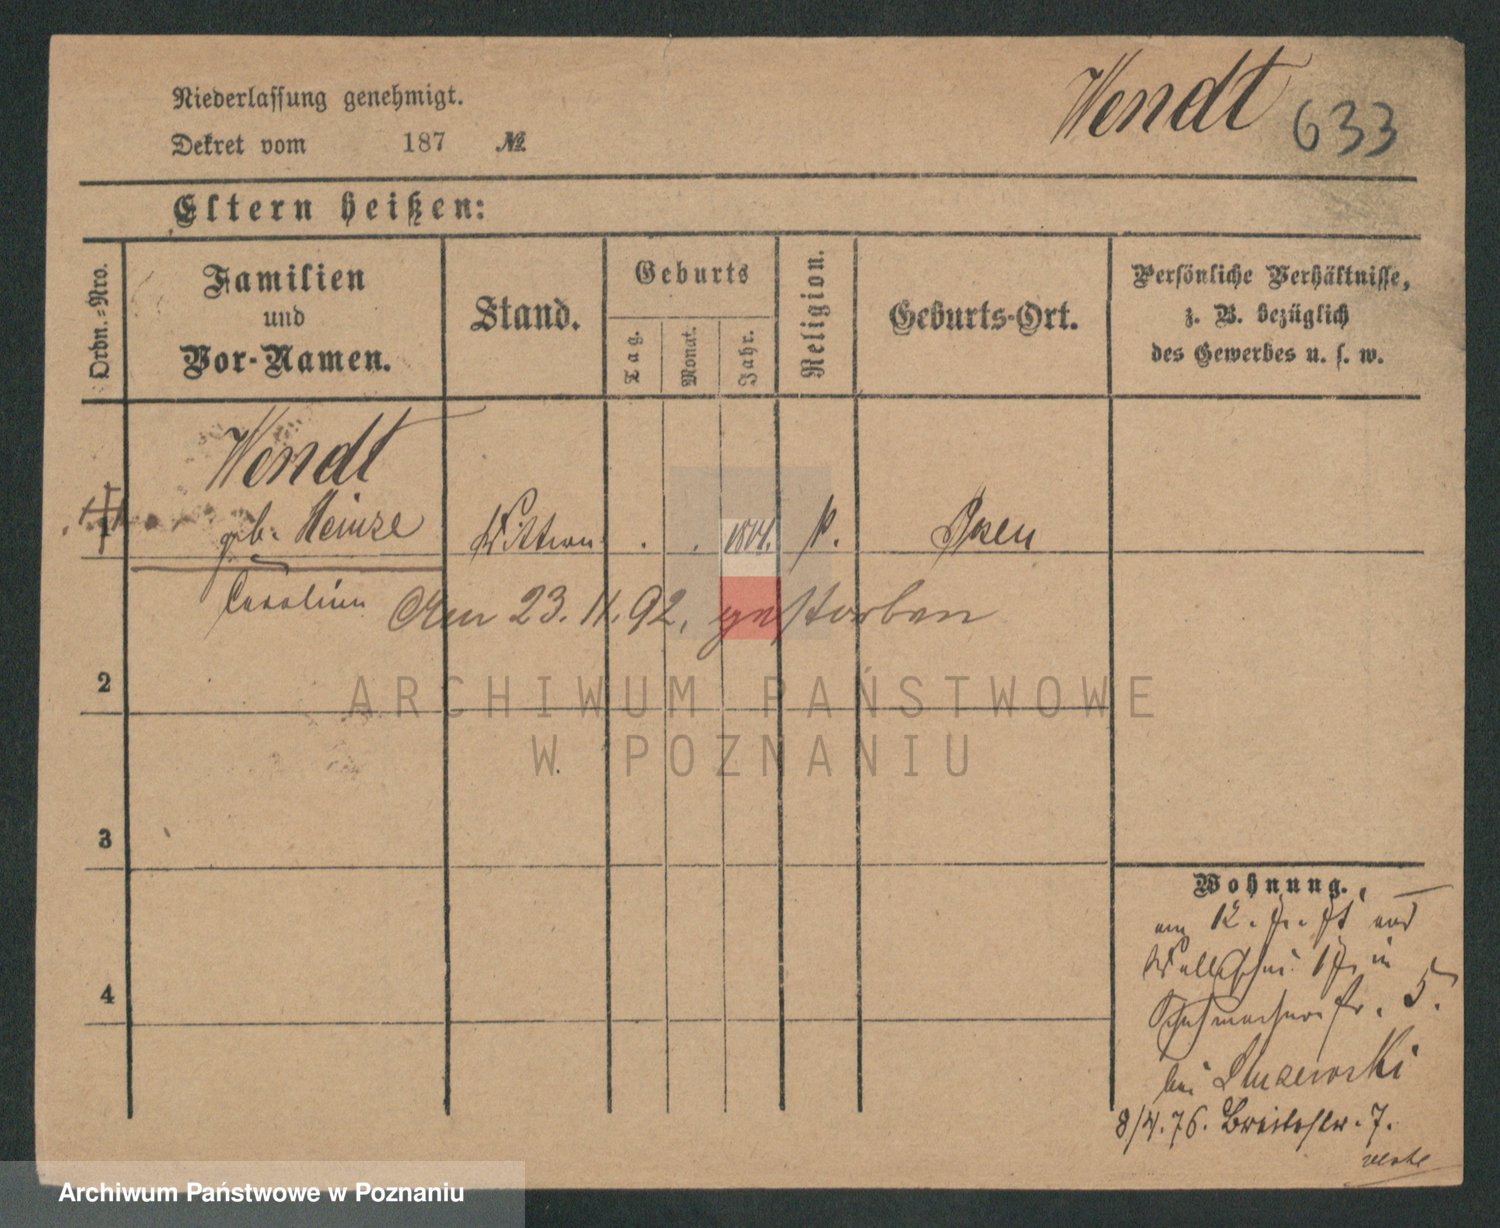 Wendt 633
Niederlassung genehmigt.
Dekret vom 187 №
Eltern heißen:
Ordn.-Nro.
Familien
und
Vor-Namen.
Stand.
Geburts
Tag.
Monat.
Jahr.
Religion.
Geburts-Ort.
Persönliche Verhältnisse,
z. B. bezüglich
des Gewerbes u. s. w.
Wendt
1 geb. Heinze Wittwe . . p. Posen
Caroline Am 23. 11. 92. gestorben
2
ARCHIWUM PAŃSTWOWE
W POZNANIU
3
Wohnung.
am 12.
in
4
5.
bei
8/4. 76. Breitestr. 7.
Archiwum Państwowe w Poznaniu